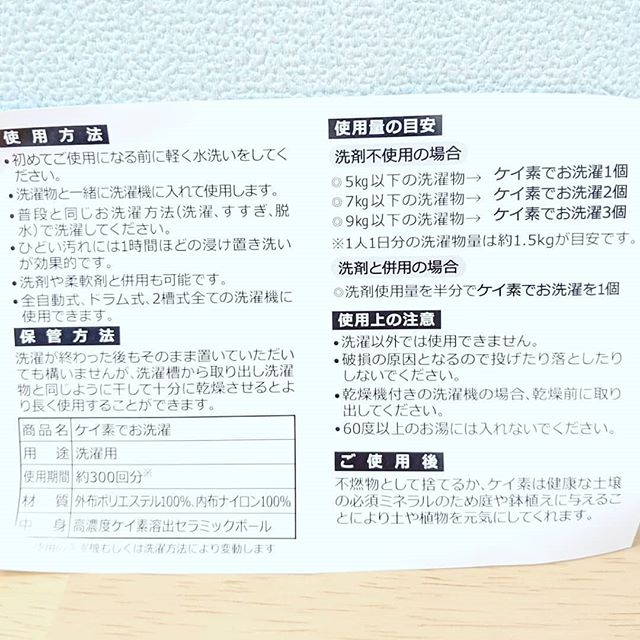 使用方法
•初めてご使用になる前に軽く水洗いをしてく
ださい。
•洗濯物と一緒に洗濯機に入れて使用します。
•普段と同じお洗濯方法(洗濯、すすぎ、脱
水)で洗濯してください。
•ひどい汚れには1時間ほどの浸け置き洗い
が効果的です。
•洗剤や柔軟剤と併用も可能です。
•全自動式、ドラム式、2槽式全ての洗濯機に
使用できます。
保管方法
洗濯が終わった後もそのまま置いていただい
ても構いませんが、洗濯槽から取り出し洗濯
物と同じように干して十分に乾燥させるとよ
り長く使用することができます。
商品名 ケイ素でお洗濯
用途 洗濯用
使用期間 約300回分※
材質 外布ポリエステル100%、内布ナイロン100%
中身 高濃度ケイ素溶出セラミックボール
機もしくは洗濯方法により変動します
使用量の目安
洗剤不使用の場合
◎5kg以下の洗濯物→ ケイ素でお洗濯1個
◎7kg以下の洗濯物→ ケイ素でお洗濯2個
◎9kg以下の洗濯物→ ケイ素でお洗濯3個
※1人1日分の洗濯物量は約1.5kgが目安です。
洗剤と併用の場合
◎洗剤使用量を半分でケイ素でお洗濯を1個
使用上の注意
•洗濯以外では使用できません。
•破損の原因となるので投げたり落としたり
しないでください。
•乾燥機付きの洗濯機の場合、乾燥前に取り
出してください。
•60度以上のお湯には入れないでください。
ご使用後
不燃物として捨てるか、ケイ素は健康な土壌
の必須ミネラルのため庭や鉢植えに与えるこ
とにより土や植物を元気にしてくれます。